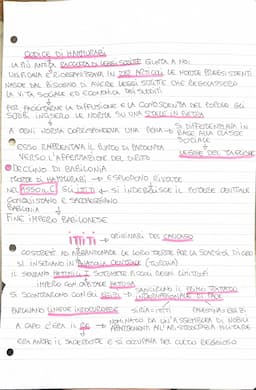 CODICE DI HAMMURABI
LA PIÙ ANTICA RACCOLTA DI LEGGI SCRITTE GIUNTA A NOI.
UNIFICAVA E RIORGANIZZAVA IN 282 ARTICOLI LE NORME PREESISTENTI
NASCE DAL BISOGNO DI AVERE LEGGI SCRITTE CHE REGOLASSERO
LA VITA SOCIALE ED ECONOMICA DEI SUDDITI
PER FAVORIRNE LA DIFFUSIONE E LA CONOSCENZA DEL POPOLO GLI
SCRIBI INCISERO LE NORME SU UNA STELE IN PIETRA
A OGNI NORMA CORRISPONDEVA UNA PENA → SI DIFFERENZIAVA IN
BASE ALLA CLASSE
SOCIALE
LEGGE DEL TAGLIONE
ESSO RAPPRESENTA IL PUNTO DI PARTENZA
VERSO L'AFFERMAZIONE DEL DIRITTO
DECLINO DI BABILONIA
MORTE DI HAMMURABI → ESPLODONO RIVOLTE
NEL 1600 A.C. GLI ITTITI → SI INDEBOLISCE IL POTERE CENTRALE
CONQUISTANO E SACCHEGGIANO
BABILONIA
FINE IMPERO BABILONESE
ITTITI → ORIGINARI DEL CAUCASO
COSTRETTI AD ABBANDONARE LE LORO TERRE PER LA
SI INSEDIANO IN ANATOLIA CENTRALE (TURCHIA)
IL SOVRANO HATTUSILI I SOTTOMETTE I POPOLI DEGLI
IMPERO CON CAPITALE HATTUSA
SI SCONTRARONO CON GLI EGIZI → SANCIRONO IL PRIMO TRATTATO
INTERNAZIONALE DI PACE
PARLAVANO LINGUE INDOEUROPEE
A CAPO C'ERA IL RE → NOMINATO DA UN'ASSEMBLEA DI NOBILI
APPARTENENTI ALL'ARISTOCRAZIA MILITARE
ERA ANCHE IL SACERDOTE E SI OCCUPAVA DEL CULTO RELIGIOSO